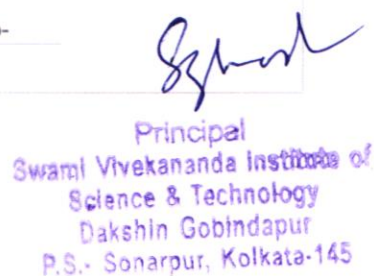 Principal
Swami Vivekananda Institute of
Science & Technology
Dakshin Gobindapur
P.S.- Sonarpur, Kolkata-145